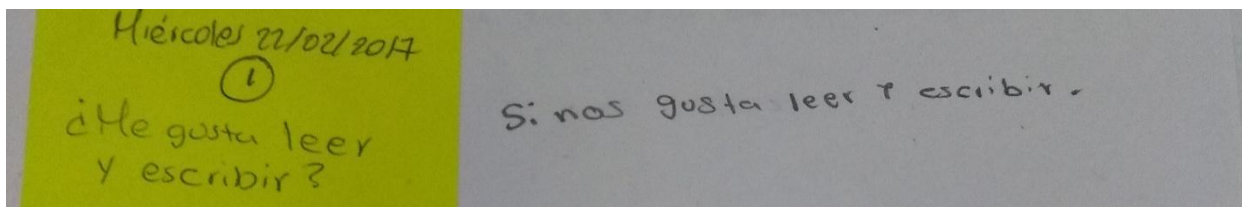 Miércoles 22/02/2017
1
¿Me gusta leer
y escribir?
Si nos gusta leer y escribir.